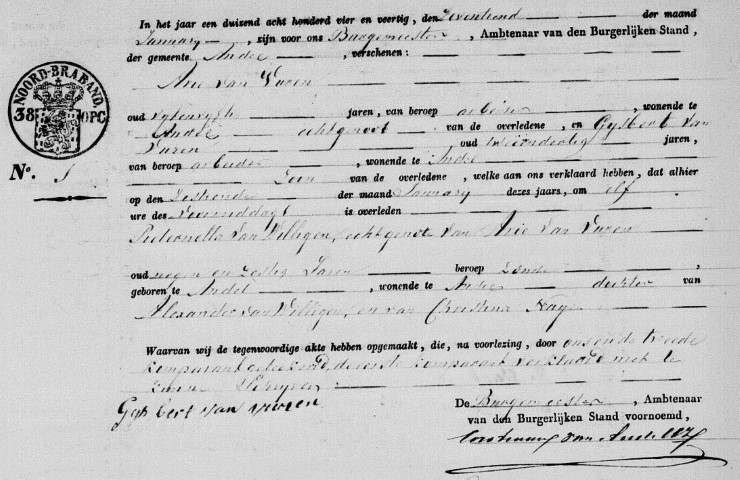 In het jaar een duizend acht honderd vier en veertig, den Zeventiend der maand
January, zijn voor ons Burgemeester, Ambtenaar van den Burgerlijken Stand,
der gemeente Andel, verschenen:
Arie van Vuren
NOORD-BRABAND
38 OPC
oud jaren, van beroep arbeider, wonende te
Andel echtgenoot van de overledene, en Gijsbert van
Vuren oud jaren,
van beroep arbeider, wonende te Andel
No. 1
Zoon van de overledene, welke aan ons verklaard hebben, dat alhier
op den Zestiende der maand January dezes jaars, om elf
ure des voormiddags is overleden
Pieternella van Willigen, echtgenoot van Arie van Vuren
oud negen en zestig Jaren beroep Zonder,
geboren te Andel, wonende te Andel dochter van
Alexander van Willigen, en van Christina
Waarvan wij de tegenwoordige akte hebben opgemaakt, die, na voorlezing, door ons en de tweede
komparant geteekend, de eerste komparant verklaard niet te
kunnen Schryven
Gijsbert van vuren
De Burgemeester, Ambtenaar
van den Burgerlijken Stand voornoemd,
van Andel